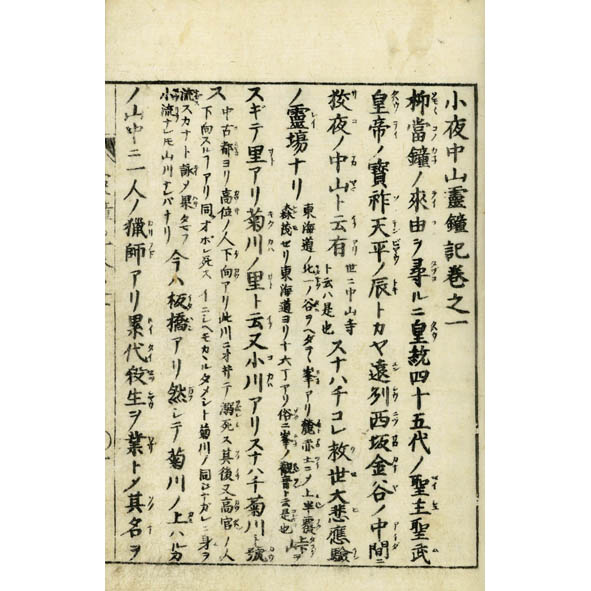 小夜中山靈鐘記巻之一
抑當鐘ノ來由ヲ尋ルニ皇統四十五代ノ聖主聖武
皇帝ノ寶祚天平ノ辰トカヤ遠列西坂金谷ノ中間ニ
狡夜ノ中山ト云有
世ニ中山寺
ト云ハ是也
スナハチコレ救世大悲應驗
ノ靈塲ナリ
東海道ノ北一ノ谷ヲヘダテヽ峯アリ
森茂セリ東海道ヨリ十六丁アリ俗ニ峯ノ觀音ト云是也
峠ヲ
スギテ里アリ菊川ノ里ト云又小川アリスナハチ菊川ト號
ス
中古都ヨリ高位ノ人下向アリ此川ニオヰテ溺死ス其後又高官ノ人
下向スルフアリ同オボレ死ス イニシヘモカヽルタメシト菊川ノ同ナガレニ身ヲ
流スカナト詠メ果タモフ
小流ナレ𪜈山川ナレバナリ
今ハ板橋アリ然シテ菊川ノ上ハルカ
ノ山中ニ一人ノ獵師アリ累代殺生ヲ業トメ其名ヲ